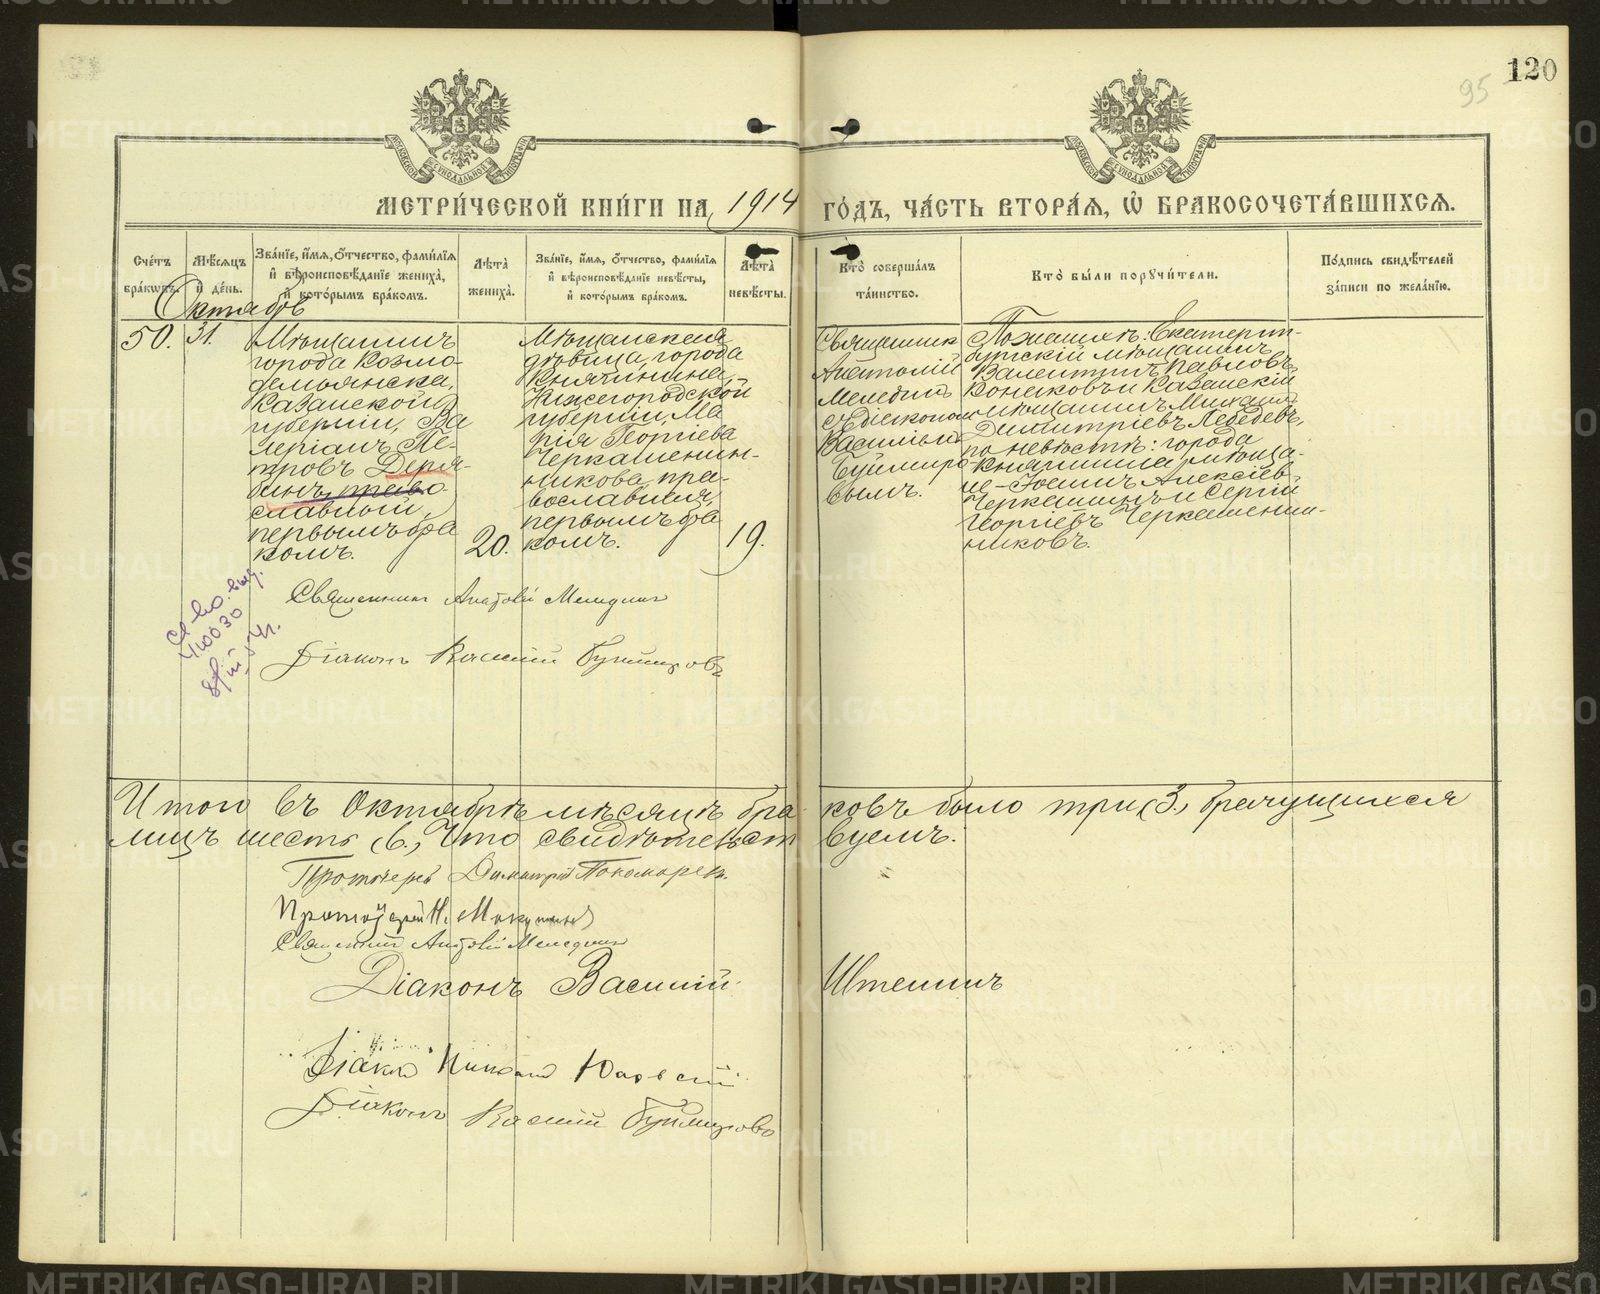 120
95
МОСКОВСКОЙ СѴНОДАЛЬНОЙ ТИПОГРАФІИ
МОСКОВСКОЙ СѴНОДАЛЬНОЙ ТИПОГРАФІИ
МЕТРИ́ЧЕСКОЙ КНИ́ГИ НА 1914 ГО́ДЪ, ЧА́СТЬ ВТОРА́Я, Ѽ БРАКОСОЧЕТА́ВШИХСЯ.
Сче́тъ бра́кѡвъ.
Мѣ́сяцъ и҆ де́нь.
Зва́нїе, и҆́мя, ѻ҆́тчество, фами́лїя и҆ вѣроисповѣ́данїе жениха̀, и҆ кото́рымъ бра́комъ.
Лѣта̀ жениха̀.
Зва́нїе, и҆́мя, ѻ҆́тчество, фами́лїя и҆ вѣроисповѣ́данїе невѣ́сты, и҆ кото́рымъ бра́комъ.
Лѣта̀ невѣ́сты.
Кто̀ соверша́лъ та́инство.
Кто̀ бы́ли порꙋчи́тели.
По́дпись свидѣ́телей за́писи по жела́нїю.
Октябрь
50.
31.
Мѣщанинъ
города Козмо-
демьянска,
Казанской
губерніи, Ва
леріанъ Пе-
тровъ Деря-
бинъ, право-
славный,
первымъ бра
комъ.
20.
Мѣщанская
дѣвица города
Княгинина,
Нижегородской
губерніи, Ма
рія Георгіева
Черкашенин-
никова, пра-
вославная,
первымъ бра
комъ.
19.
Священникъ
Анатолій
Мелединъ
съ діакономъ
Василіемъ
Буймиро
вымъ.
По женихѣ: Екатерин-
бургскій мѣщанинъ
Валентинъ Павловъ
Коньковъ и Казанскій
мѣщанинъ Михаилъ
Димитріевъ Лебедевъ,
по невѣстѣ: города
Княгинина мѣща-
не - Іоаннъ Алексіевъ
Черкашинъ и Сергій
Георгіевъ Черкашенин-
никовъ.
Священникъ Анатолій Меледин
Діаконъ Василій Буймировъ
Итого въ Октябрѣ мѣсяцѣ бра-ковъ было три (3.), брачущихся
лицъ шесть (6.), Что свидѣтельст вуемъ.
Протоіерей Димитрій Пономарев.
Протоіерей Н.
Священникъ Анатолій Меледин
Діаконъ Василій Иштенинъ
Діакон Николай
Діаконъ Василій Буймировъ